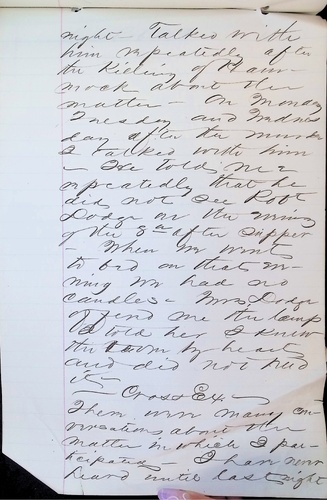 night - Talked with
him repeatedly after
the killing of Ham-
mock about the
matter - On Monday
Tuesday and Wednes
day after the murder
I talked with him
- He told me
repeatedly that he
did not see Robt
Dodge on the evening
of the 8th after supper
- When we went
to bed on that eve-
ning we had no
candles - Mrs Dodge
offered me the lamp
I told her I knew
the room by heart
and did not need
it -
Cross Ex -
There were many con
versations about the
matter in which I par
ticipated - I have never
heard until last night